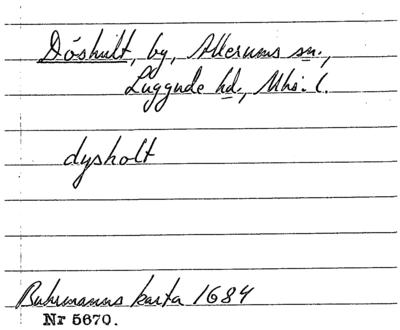 Döshult, by, Allerums sn.,
Luggude hd., Mhs. l.
dysholt
Buhrmanns karta 1684
Nr 5670.